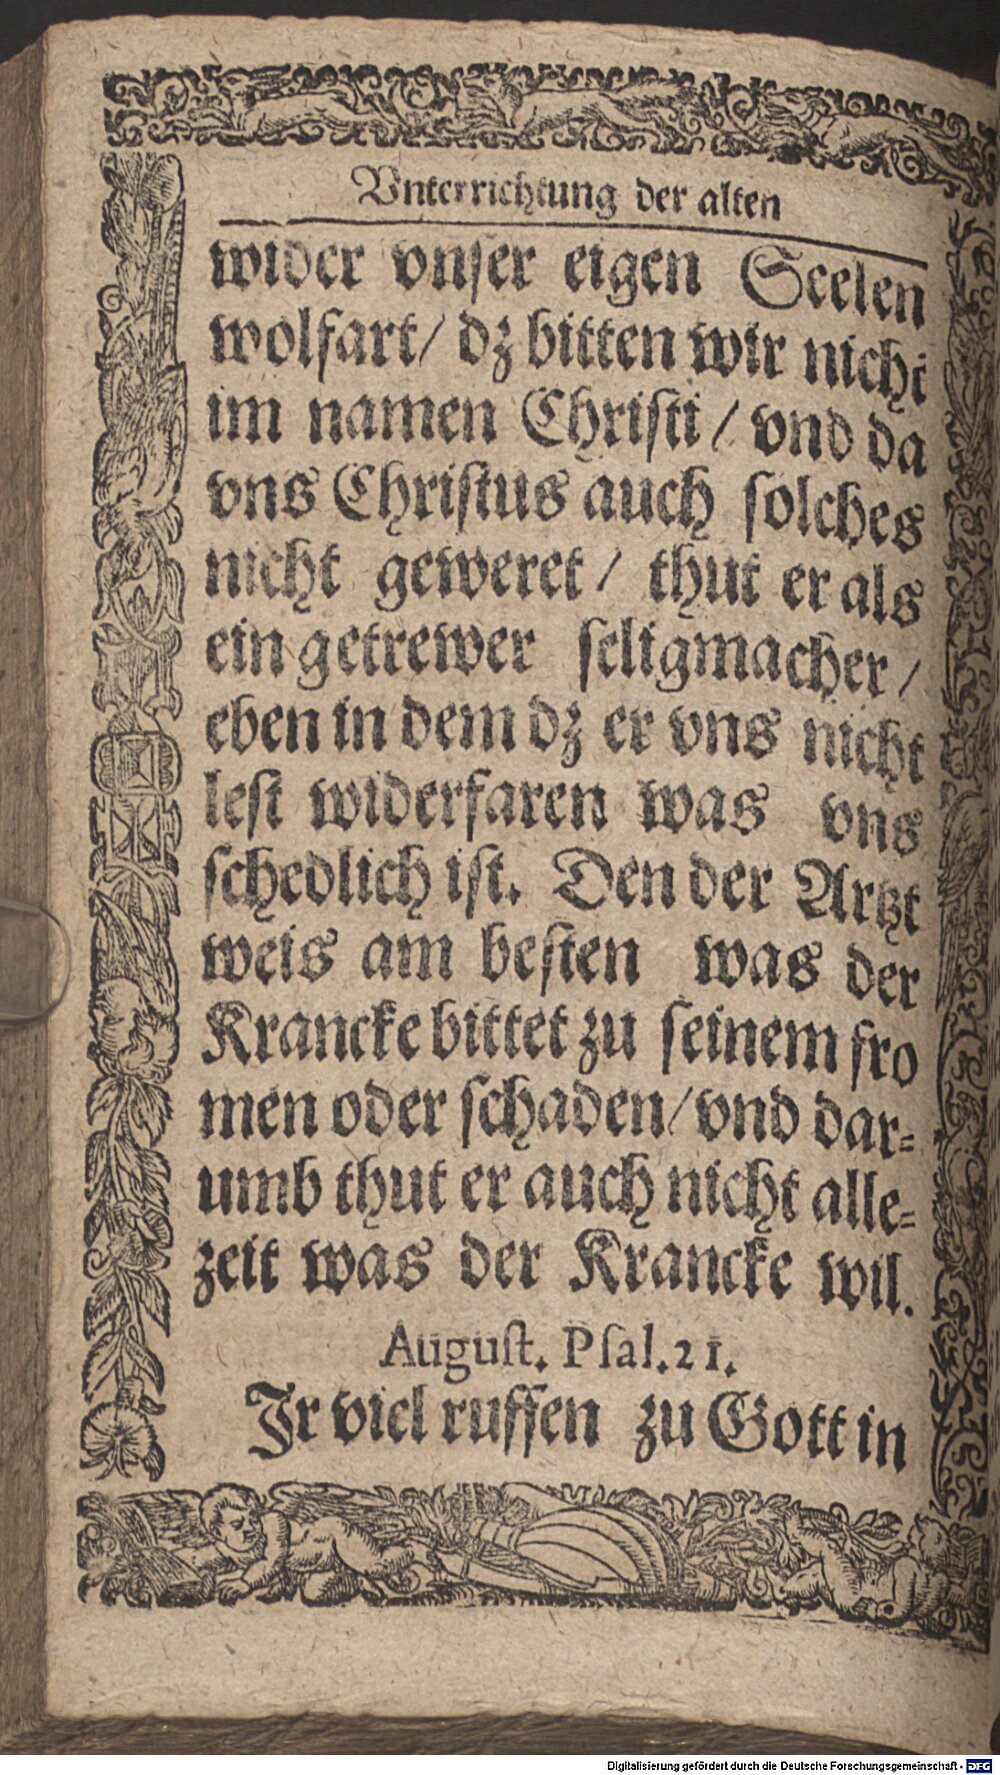 Vnterrichtung der alten
wider vnser eigen Seelen
wolfart/ dz bitten wir nicht
im namen Christi / vnd da
vns Christus auch solches
nicht geweret / thut er als
ein getrewer seligmacher /
eben in dem dz er vns nicht
lest widerfaren was vns
schedlich ist. Den der Artzt
weis am besten was der
Krancke bittet zu seinem fro
men oder schaden/ vnd dar⸗
umb thut er auch nicht alle⸗
zeit was der Krancke wil.
August. Psal. 21.
Jr viel ruffen zu Gott in
Digitalisierung gefördert durch die Deutsche Forschungsgemeinschaft - DFG